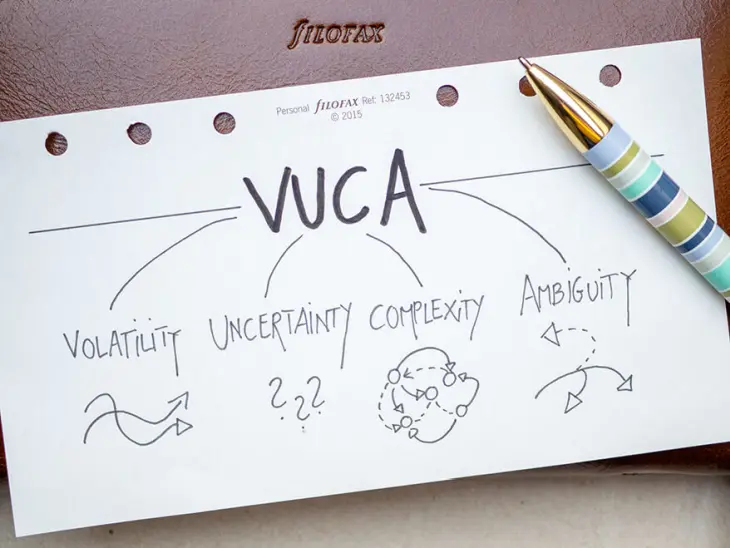 filOFAX
Personal filOFAX Ref: 132453
© 2015
VUCA
VOLATILITY UNCERTAINTY COMPLEXITY AMBIGUITY
? ? ?